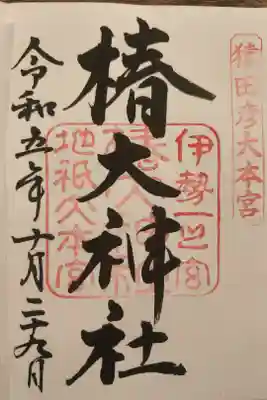 猿田彦大本宮
伊勢一之宮
地祇大本宮
椿大神社
令和五年十月二十九日